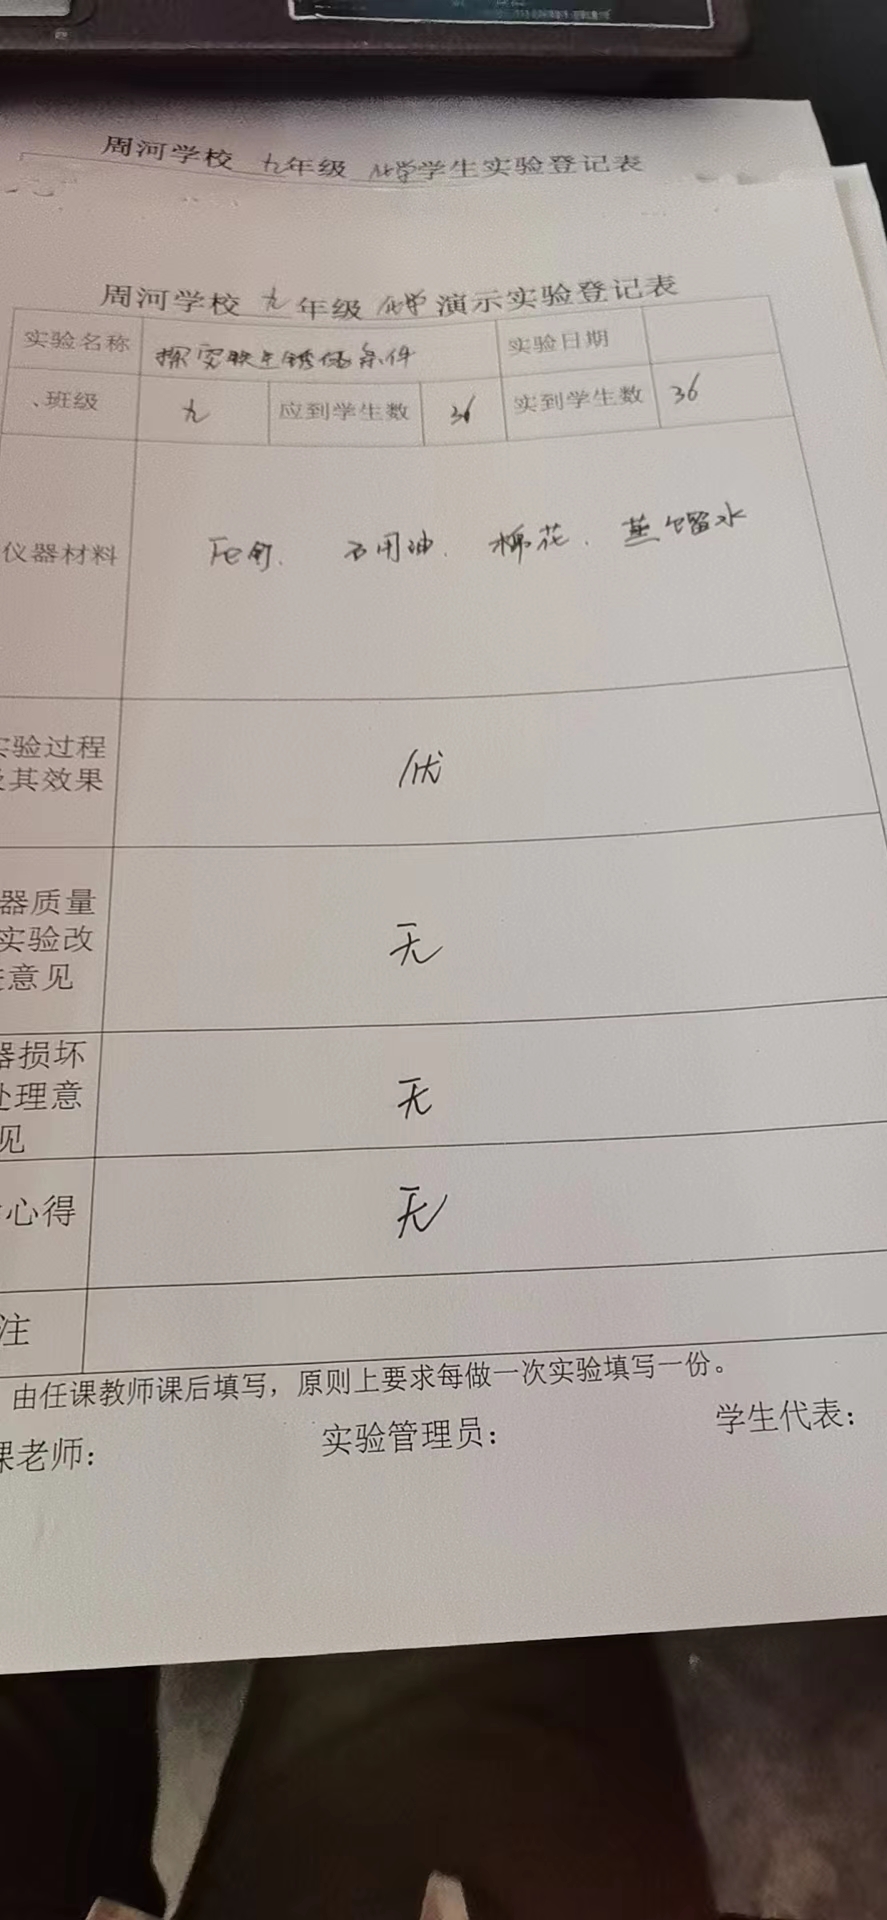 周河学校 九年级 化学学生实验登记表
周河学校 九年级 化学 演示实验登记表
实验名称 探究铁生锈的条件 实验日期
班级 九 应到学生数 36 实到学生数 36
仪器材料 Fe钉. 石用油. 棉花. 蒸馏水
实验过程
及其效果 优
器质量
实验改
进意见 无
器损坏
处理意
见 无
心得 无
注
由任课教师课后填写，原则上要求每做一次实验填写一份。
课老师： 实验管理员： 学生代表：